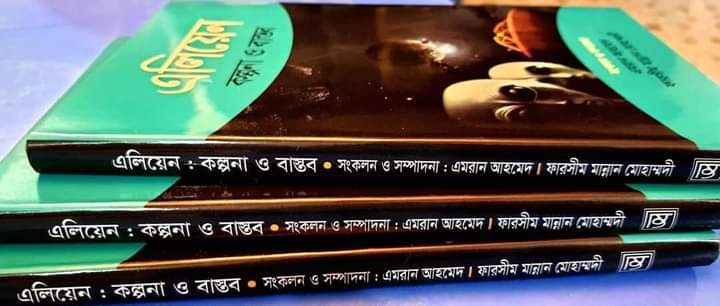 এলিয়েন
কল্পনা ও বাস্তব
এলিয়েন : কল্পনা ও বাস্তব • সংকলন ও সম্পাদনা : এমরান আহমেদ | ফারসীম মান্নান মোহাম্মদী
এলিয়েন : কল্পনা ও বাস্তব • সংকলন ও সম্পাদনা : এমরান আহমেদ | ফারসীম মান্নান মোহাম্মদী
এলিয়েন : কল্পনা ও বাস্তব • সংকলন ও সম্পাদনা : এমরান আহমেদ | ফারসীম মান্নান মোহাম্মদী